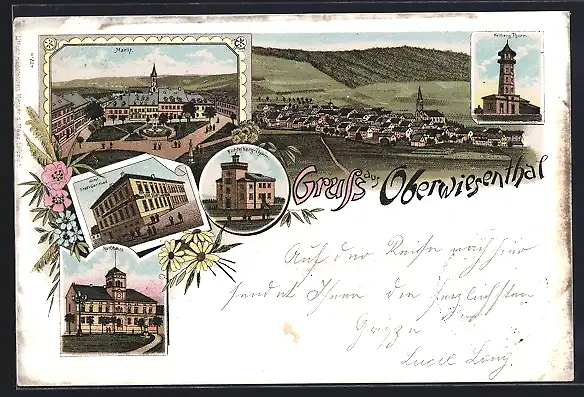 Markt.
Keilberg Thurm.
Fichtelberg-Thurm.
Rathhaus
Gruss aus Oberwiesenthal
Auf der Reise nach hier
sendet Ihnen die herzlichsten
Grüsse
Lucie